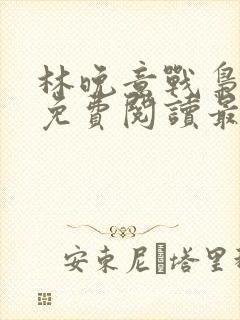 林晚意戰梟
免費閱讀最
安東尼·塔里